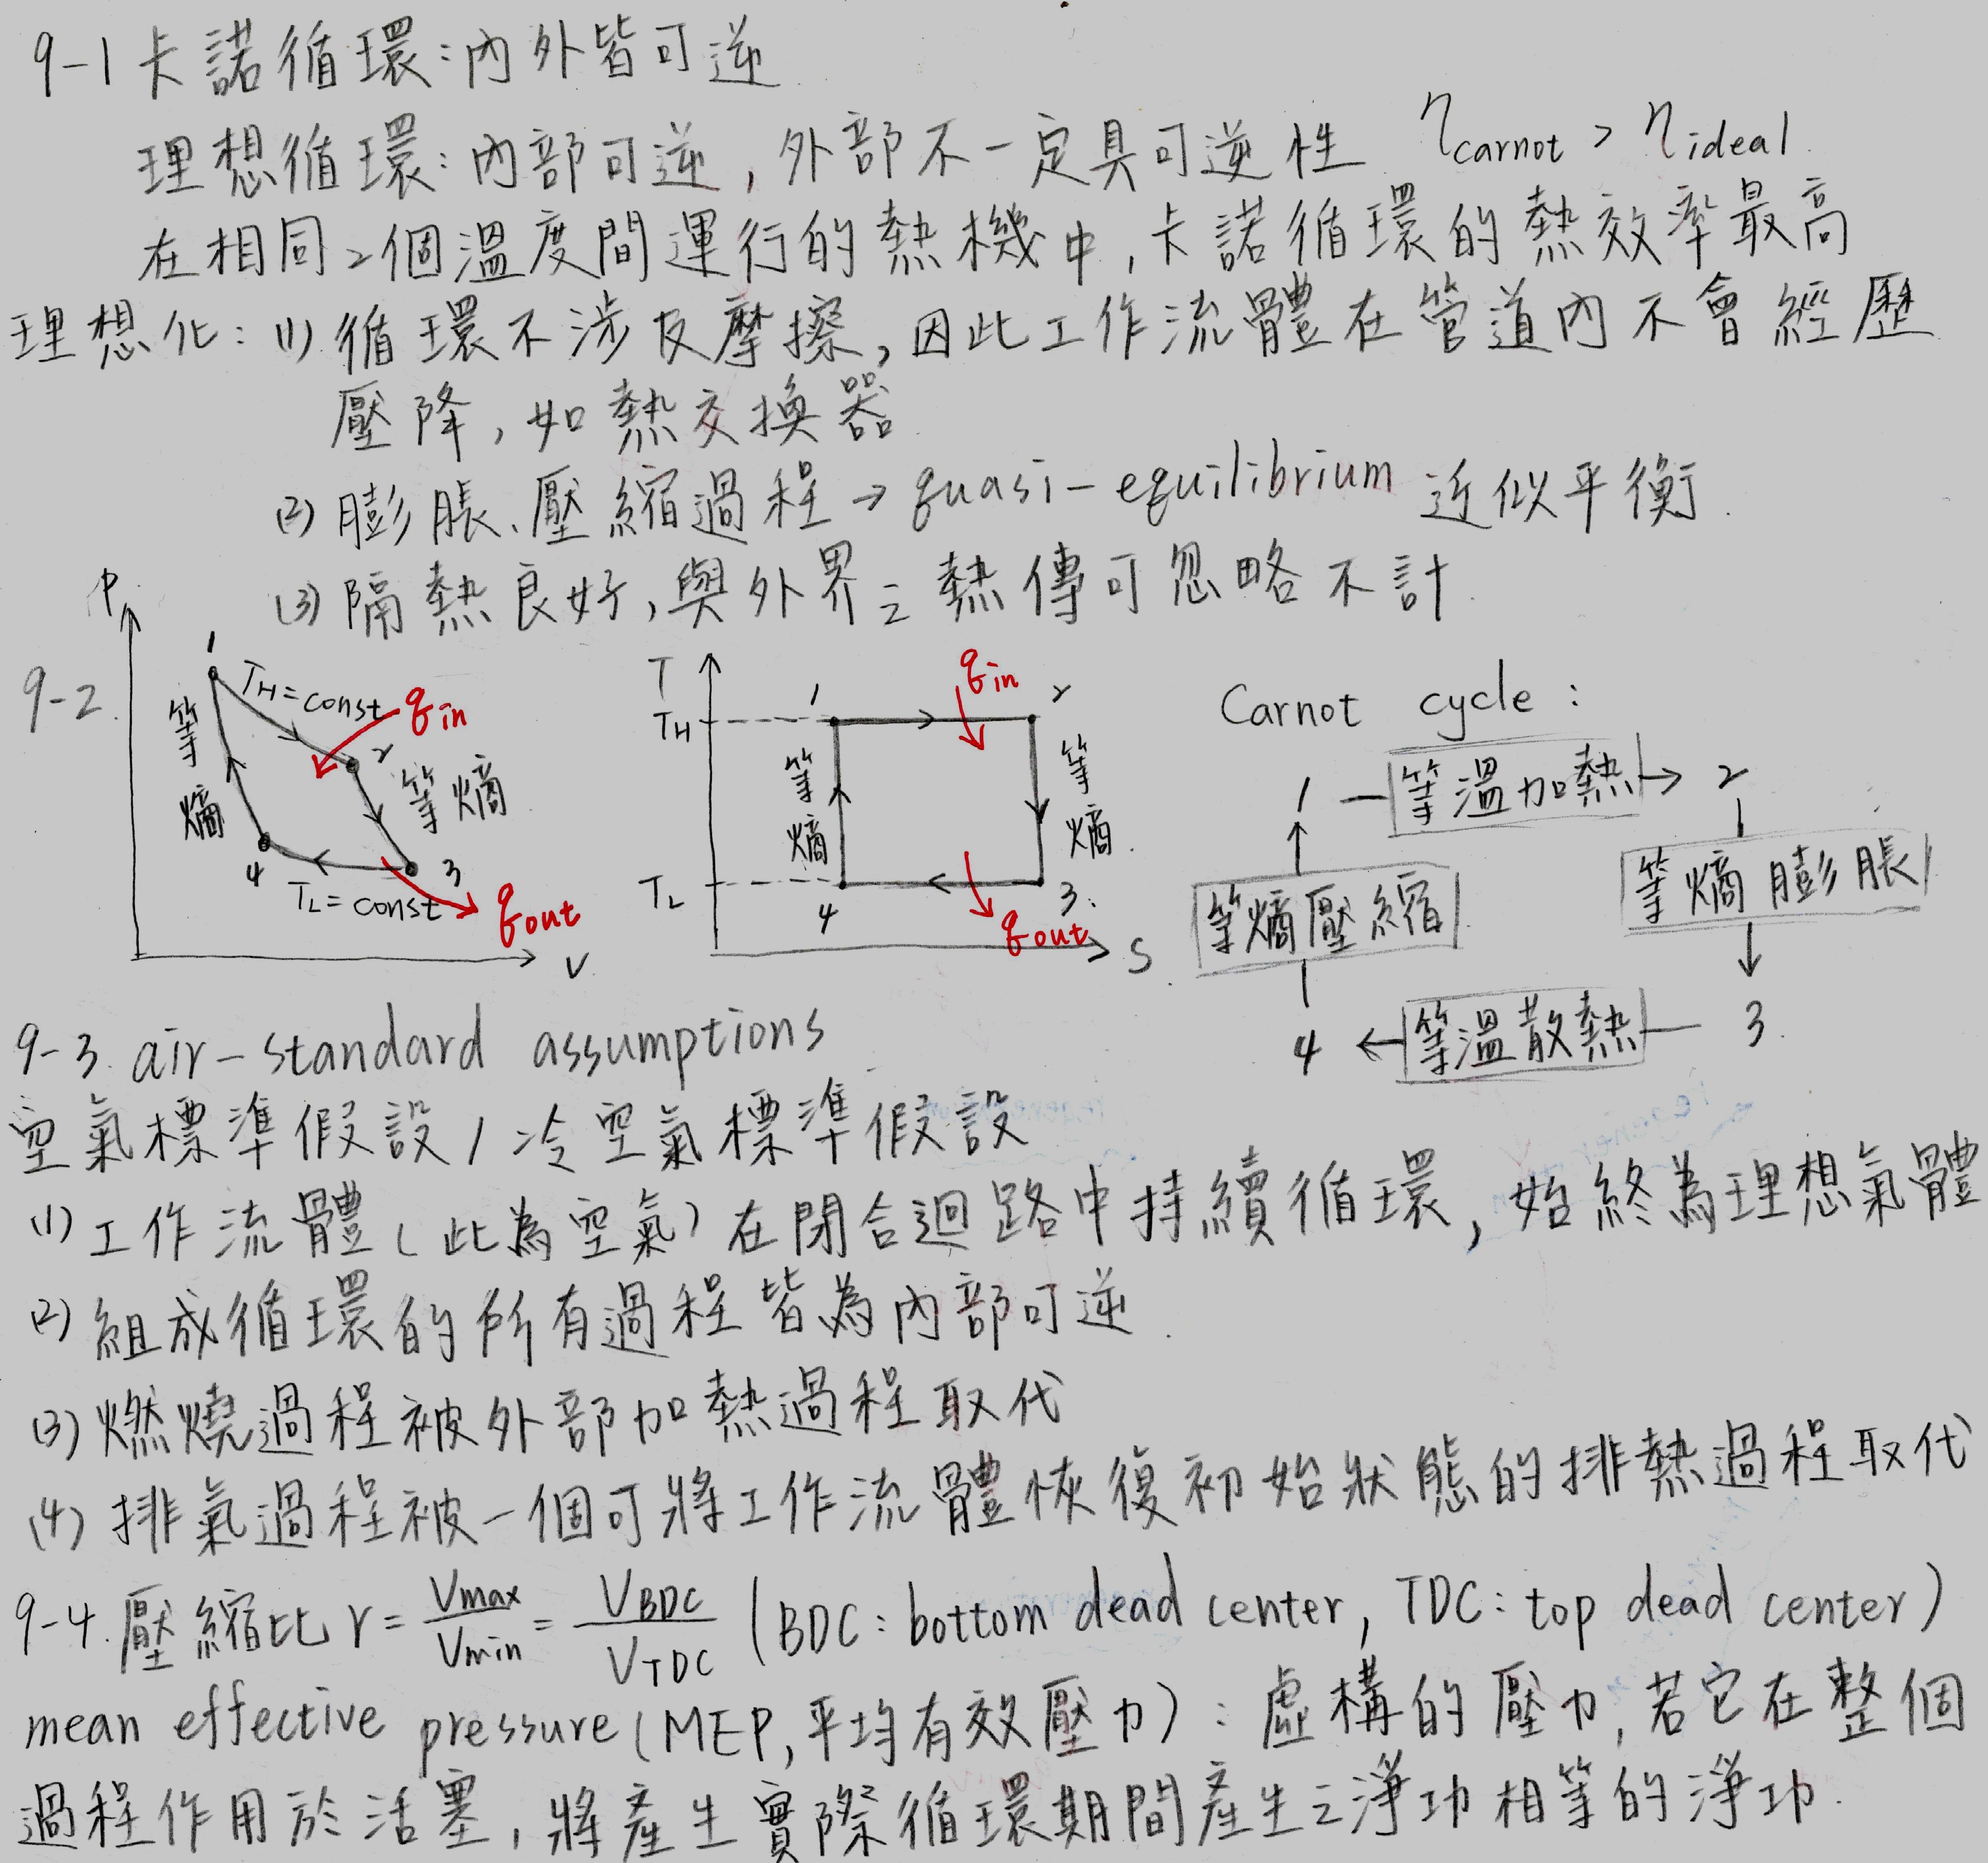 9-1 卡諾循環:內外皆可逆
理想循環:內部可逆,外部不一定具可逆性 ηcarnot > ηideal
在相同2個溫度間運行的熱機中,卡諾循環的熱效率最高
理想化:(1) 循環不涉及摩擦,因此工作流體在管道內不會經歷
壓降,如熱交換器
(2) 膨脹、壓縮過程 → quasi-equilibrium 近似平衡.
(3) 隔熱良好,與外界之熱傳可忽略不計.
9-2.
P
1
TH=const
qin
2
等熵
等熵
4
TL=const
3
qout
V
T
TH
1
qin
2
等熵
等熵
TL
4
3
qout
S
Carnot cycle:
1 等溫加熱 → 2
↑
等熵壓縮
等熵膨脹
↓
4 ← 等溫散熱 3
9-3. air-standard assumptions
空氣標準假設/冷空氣標準假設
(1) 工作流體(此為空氣)在閉合迴路中持續循環,始終為理想氣體
(2) 組成循環的所有過程皆為內部可逆.
(3) 燃燒過程被外部加熱過程取代
(4) 排氣過程被一個可將工作流體恢復初始狀態的排熱過程取代
9-4. 壓縮比 r = Vmax/Vmin = VBDC/VTDC (BDC: bottom dead center, TDC: top dead center)
mean effective pressure (MEP,平均有效壓力):虛構的壓力,若它在整個
過程作用於活塞,將產生實際循環期間產生之淨功相等的淨功.